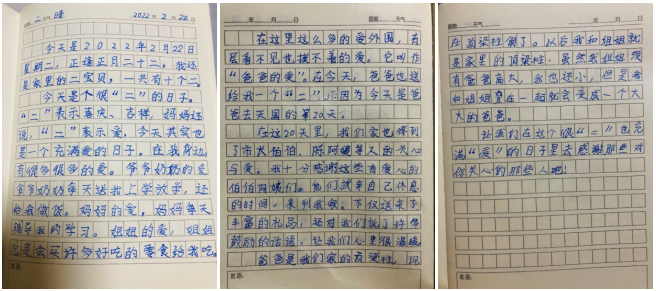 星期二 天气 晴 2022年2月22日
今天是2022年2月22日
星期二,正逢正月二十二,我还
是家里的二宝贝,一共有十个二。
今天是个很“二”的日子。
“二”表示喜庆、吉祥,妈妈还
说,“二”表示爱,今天其实也
是一个充满爱的日子。在我身边,
有很多很多的爱。爷爷奶奶的爱,
爷爷奶奶每天送我上学放学,还
给我做饭。妈妈的爱,妈妈每天
辅导我的学习。姐姐的爱,姐姐
总是会买许多好吃的零食给我吃。
批语:
年 月 日 星期 天气
在这里这么多的爱外围,有
层看不见也摸不着的爱。它叫作
“爸爸的爱”。在今天,爸爸也送
给我一个“二”,因为今天是爸
爸去天国的第20天。
在这20天里,我们家也得到
了市大伯伯、阿姨等人的关心
与爱。我十分感谢这些有爱心的
伯伯阿姨们。他们放弃自己休息
的时间,来到我家。不仅送来了
丰富的礼品,还对我们说了许多
鼓励的话语,让我们心里很温暖。
爸爸是我们家的顶梁柱,现
批语:
星期 天气 年 月 日
在顶梁柱倒了。以后我和姐姐就
是家里的顶梁柱。虽然我姐姐没
有爸爸高大,我也还小,但是我
和姐姐靠在一起就会变成一个大
大的爸爸。
让我们在这个很“二”也充
满“爱”的日子里去感谢那些对
你关心的那些人吧!
批语: